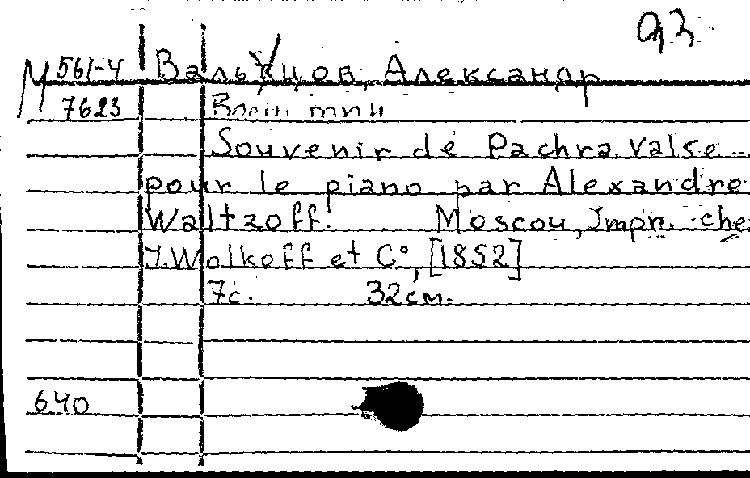 93
М 561-4 Вальцов, Александр
7623
Souvenir de Pachra. Valse
pour le piano par Alexandre
Waltzoff. Moscou, Impr. che
J. Wolkoff et Cº, [1852]
7с. 32см.
640